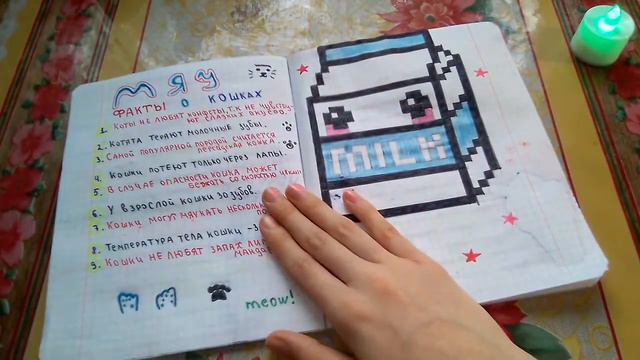 МЯУ
ФАКТЫ О КОШКАХ
1. КОТЫ НЕ ЛЮБЯТ КОНФЕТЫ, Т.К НЕ ЧУВСТВУ-
ЮТ СЛАДКИХ ВКУСОВ.
2. КОТЯТА ТЕРЯЮТ МОЛОЧНЫЕ ЗУБЫ.
3. САМОЙ ПОПУЛЯРНОЙ ПОРОДОЙ СЧИТАЕТСЯ
ПЕРСИДСКАЯ КОШКА.
4. КОШКИ ПОТЕЮТ ТОЛЬКО ЧЕРЕЗ ЛАПЫ.
5. В СЛУЧАЕ ОПАСНОСТИ КОШКА МОЖЕТ
БЕЖАТЬ СО СКОРОСТЬЮ
6. У ВЗРОСЛОЙ КОШКИ 30 ЗУБОВ.
7. КОШКИ МОГУТ МЯУКАТЬ
8. ТЕМПЕРАТУРА ТЕЛА КОШКИ -3
9. КОШКИ НЕ ЛЮБЯТ ЗАПАХ
meow!
MILK